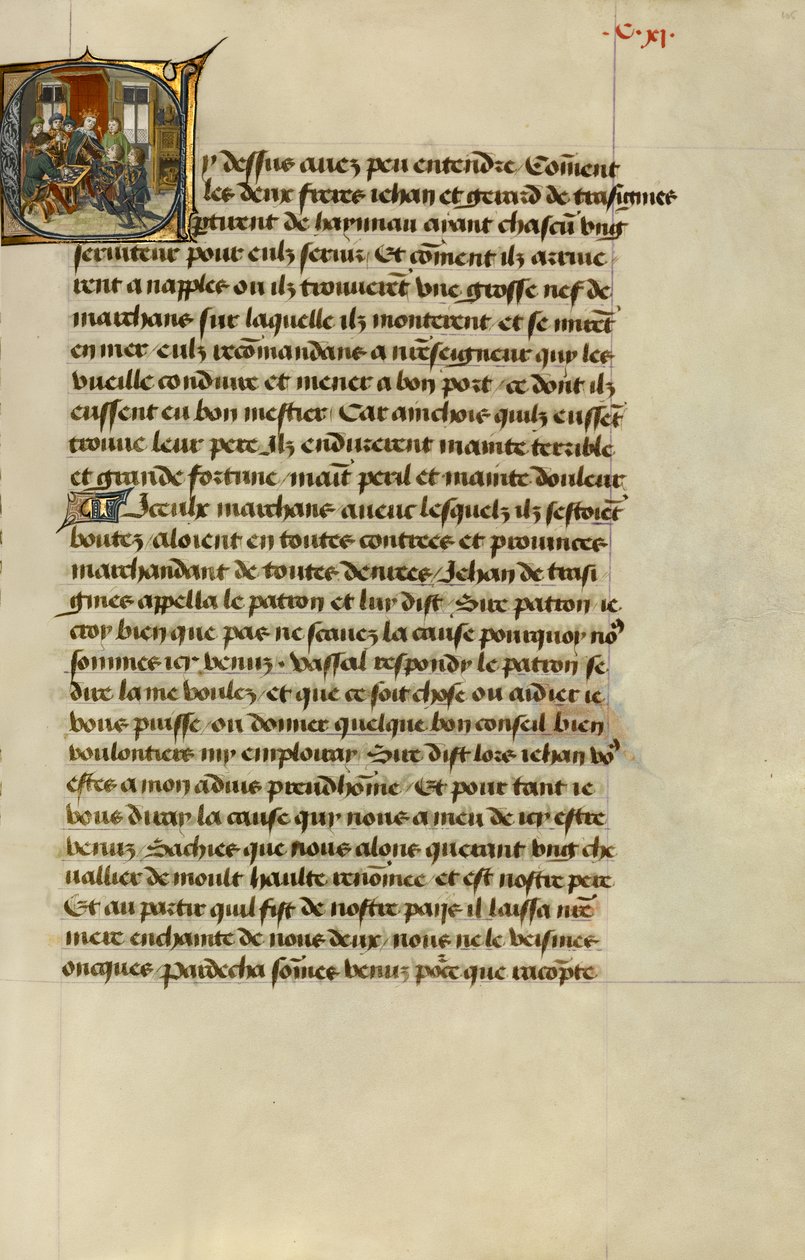 ·C·xj·
y dessus auez peu entendre / Com̄ent
les deux freres iehan et gerard de trasignies
ꝑtirent de haynnau ayant chascū vng
seruiteur pour eulz seruir / Et cōment ilz arriue
rent a napples ou ilz trouuerēt vne grosse nef de
marchans sur laquelle ilz monterent et se mirēt
en mer / eulz recōmandans a nrēseigneur quy les
vueille conduire et mener a bon port / ce dont ilz
eussent eu bon mestier / Car ainchois quilz eussēt
trouue leur pere Ilz endurerent mainte terrible
et grande fortune / maīt peril et mainte douleur
Iceulx marchans aueuc lesquelz ilz sestoiēt
boutez / aloient en toutes contrees et prouinces
marchandant de toutes denrees / Jehan de trasi
gnies appella le patron et luy dist / Sire patron ie
croy bien que pas ne scauez la cause pourquoy noꝰ
sommes icy venuz · vassal respondy le patron se
dire la me voulez / et que ce soit chose ou aidier ie
vous puisse / ou donner quelque bon conseil bien
voulontiers my emploiray / Sire dist lors iehan voꝰ
estes a mon aduis preudhōme / Et pour tant ie
vous diray la cause quy nous a meu de icy estre
venuz / Sachies que nous alons querant vng che
uallier de moult haulte renōmee / et est nostre pere
Et au partir quil fist de nostre paijs il laissa nrē
mere enchainte de nous deux / nous ne le veismes
oncques / Pardecha som̄es venuz poᷣce que racōpte